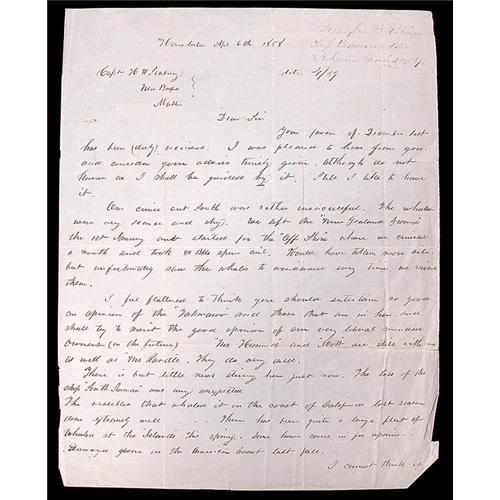 Honolulu Apr 6th 1858
Capt H W Seabury
New Bedfd
Mass
Dear Sir
Your favor of December last
has been (duly) received. I was pleased to hear from you.
and consider your advice timely given. Although do not
know as I shall be guided by it. Still I like to have
it.
Our cruise out South was rather unsuccessful. The whales
were very scarce and shy. We left the "New Zealand Ground"
the 1st January and started for the "Off Shore" where we cruised
a month and took 80 Bbls sperm oil. Would have taken more oil.
but unfortunately saw the whales to windward every time we raised
them.
I feel flattered to think you should entertain so good
an opinion of the "Tahmaroo" and those that are in her and
shall try to merit the good opinion of our very liberal minded
Owners (in the future) Mr and Mott are still with us
as well as Mr They do very well.
There is but little news stirring here just now. The loss of the
ship South was very unexpected
The vessells that whaled it on the coast of California last season
done extremely well There has been quite a large fleet of
whalers at the Islands this spring. Some have come in for repairs
Damages done on the American coast last fall.
I cannot think of